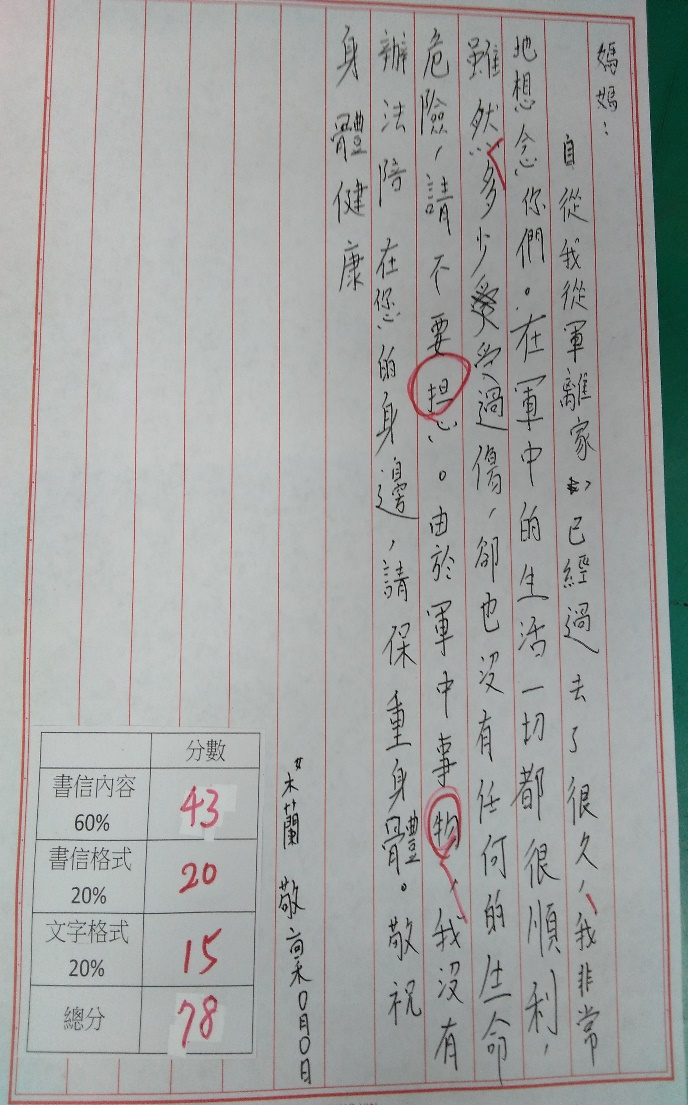 媽媽：
自從我從軍離家已經過去了很久，我非常
地想念你們。在軍中的生活一切都很順利，
雖然多少受過傷，卻也沒有任何的生命
危險，請不要担心。由於軍中事物，我沒有
辦法陪在您的身邊，請保重身體。敬祝
身體健康
女木蘭 敬稟0月0日
分數
書信內容 60% 43
書信格式 20% 20
文字格式 20% 15
總分 78